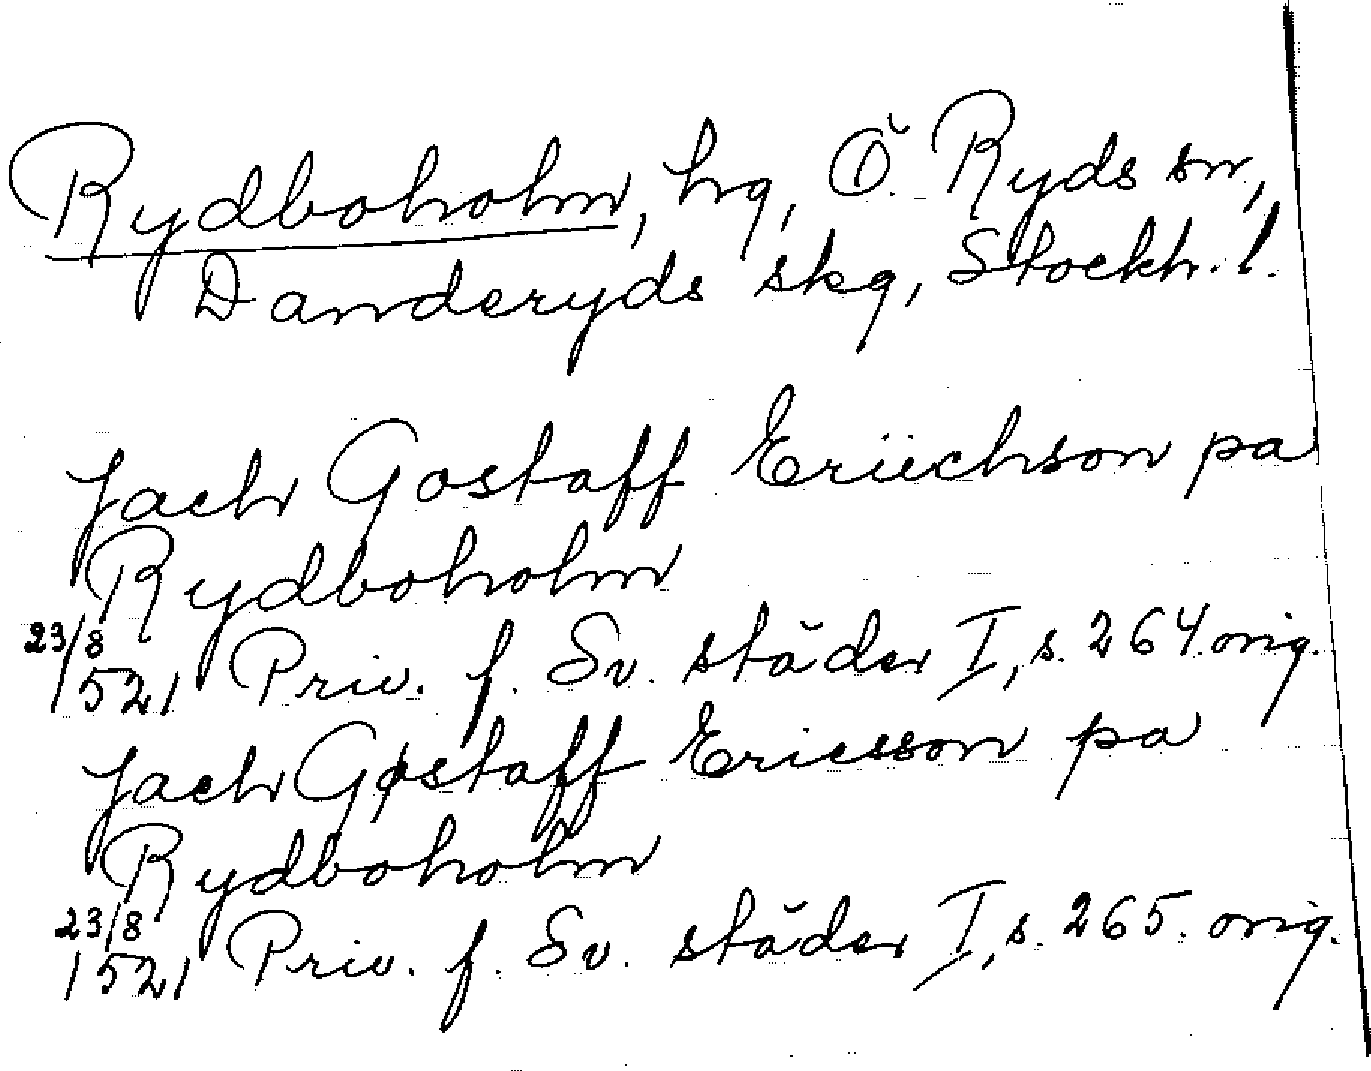 Rydboholm, hg, Ö. Ryds sn,
Danderyds skg, Stockh. l.
Jach Gostaff Eriichson pa
Rydboholm
23/8
1521 Priv. f. Sv. städer I, s. 264. orig.
Jach Gøstaff Ericsson pa
Rydboholm
23/8
1521 Priv. f. Sv. städer I, s. 265. orig.